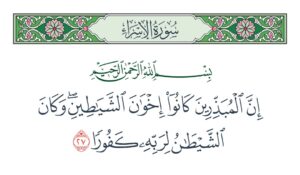 سُورَةُ الإِسْرَاءِ
بِسْمِ ٱللَّهِ ٱلرَّحْمَٰنِ ٱلرَّحِيمِ
إِنَّ ٱلْمُبَذِّرِينَ كَانُوٓا۟ إِخْوَٰنَ ٱلشَّيَٰطِينِ ۖ وَكَانَ
ٱلشَّيْطَٰنُ لِرَبِّهِۦ كَفُورًا ٢٧